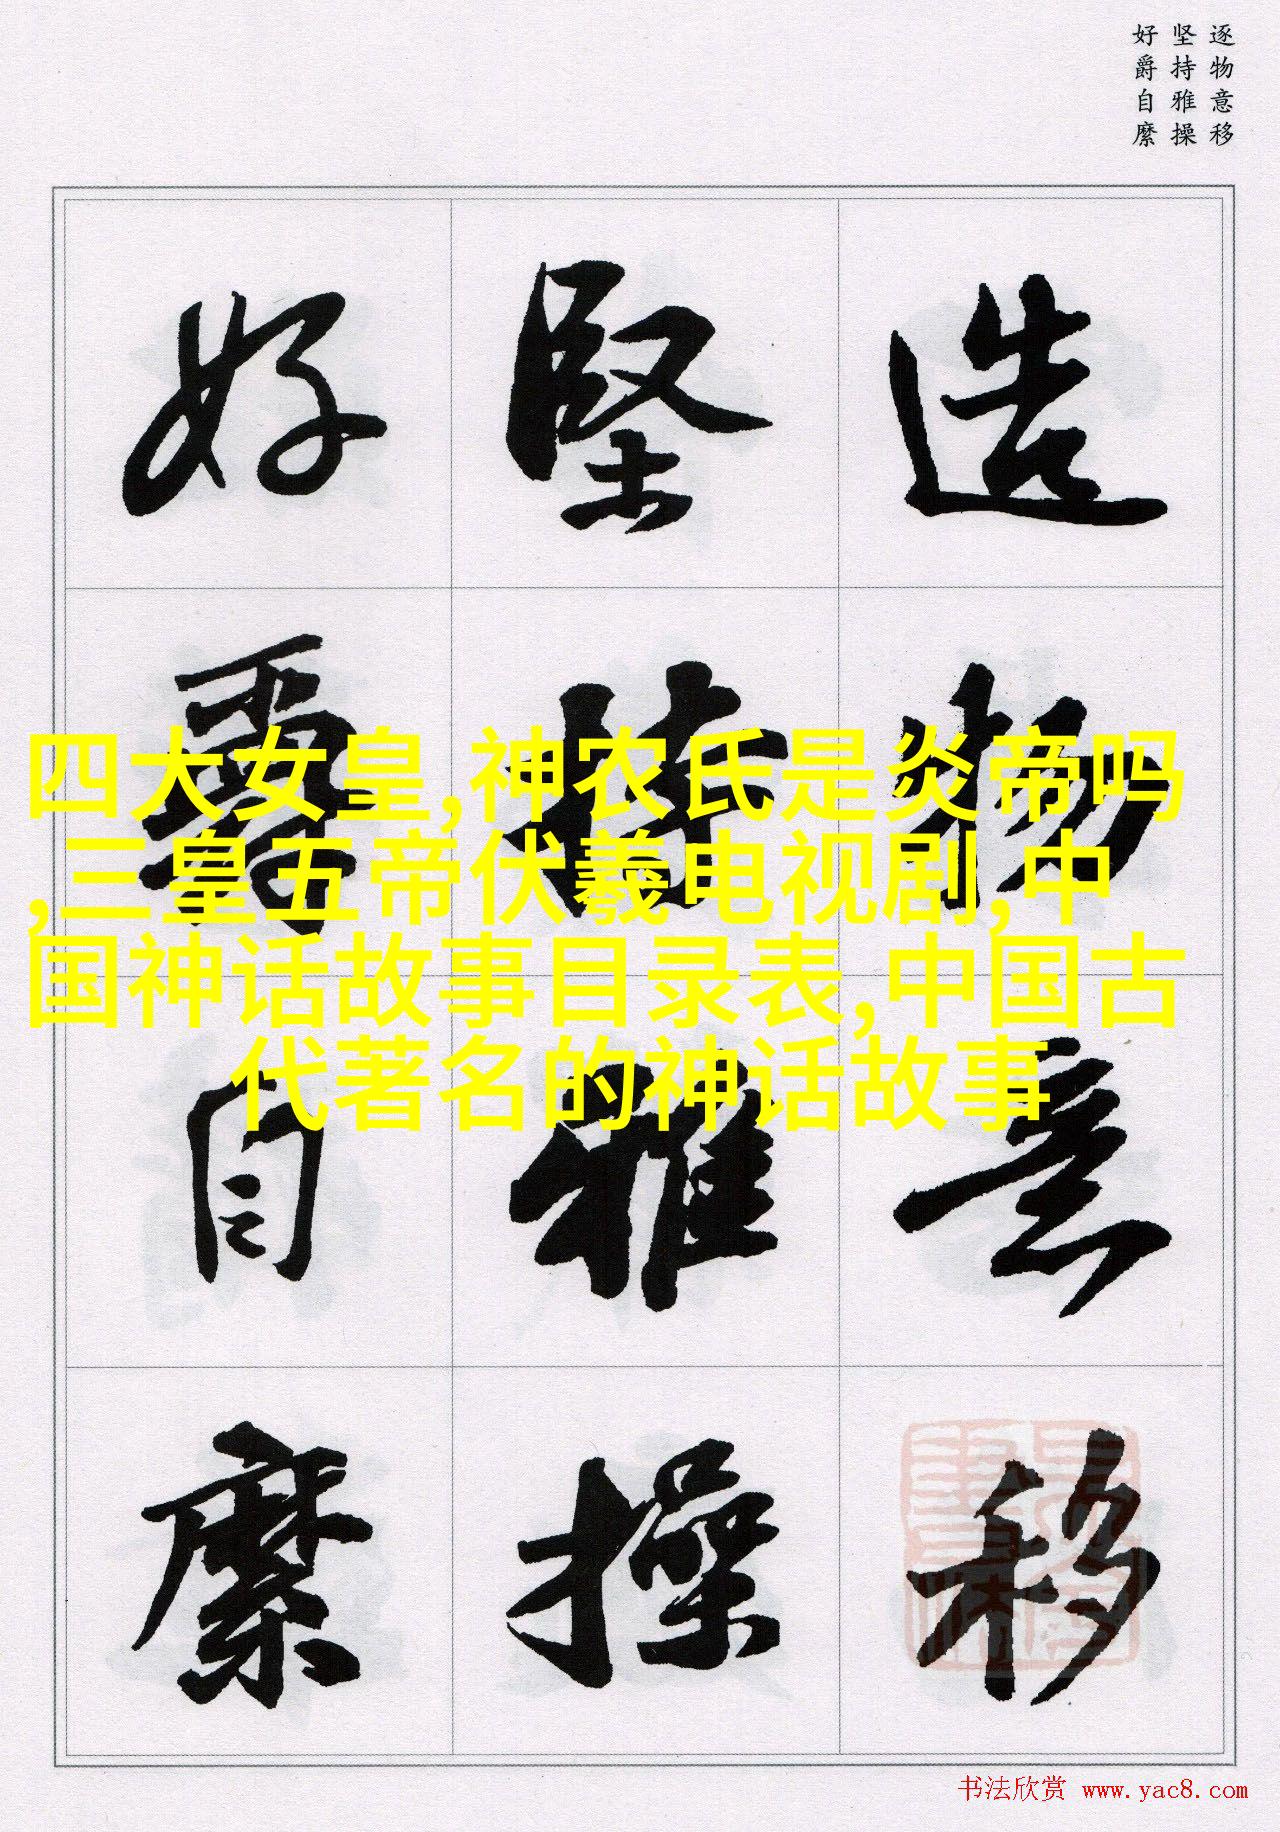 逐物意移
坚持雅操
好爵自縻
造物意移
堅持雅操
好爵自縻
四大女皇,神农氏是炎帝吗
,三皇五帝伏羲电视剧,中
国神话故事目录表,中国古
代著名的神话故事
书法欣赏 www.yac8.com